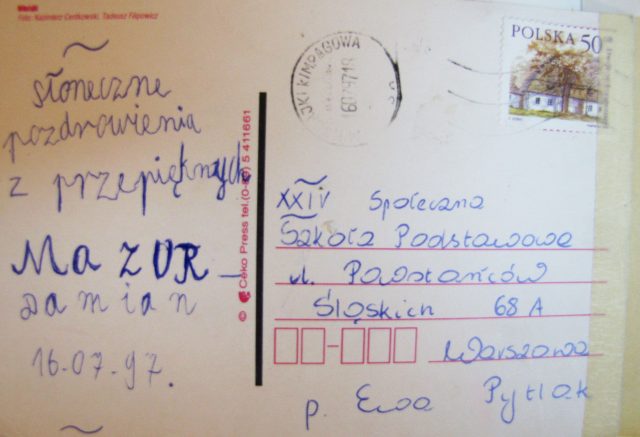 Foto: Kazimierz Centkowski, Tadeusz Filipowicz
słoneczne
pozdrowienia
z przepięknych
MAZUR
Damian
16.07.97.
© Ceko Press tel.(0-89) 5 411661
POLSKA 50
XXIV Społeczna
Szkoła Podstawowa
ul. Powstańców
Śląskich 68 A
Warszawa
p. Ewa Pytlak